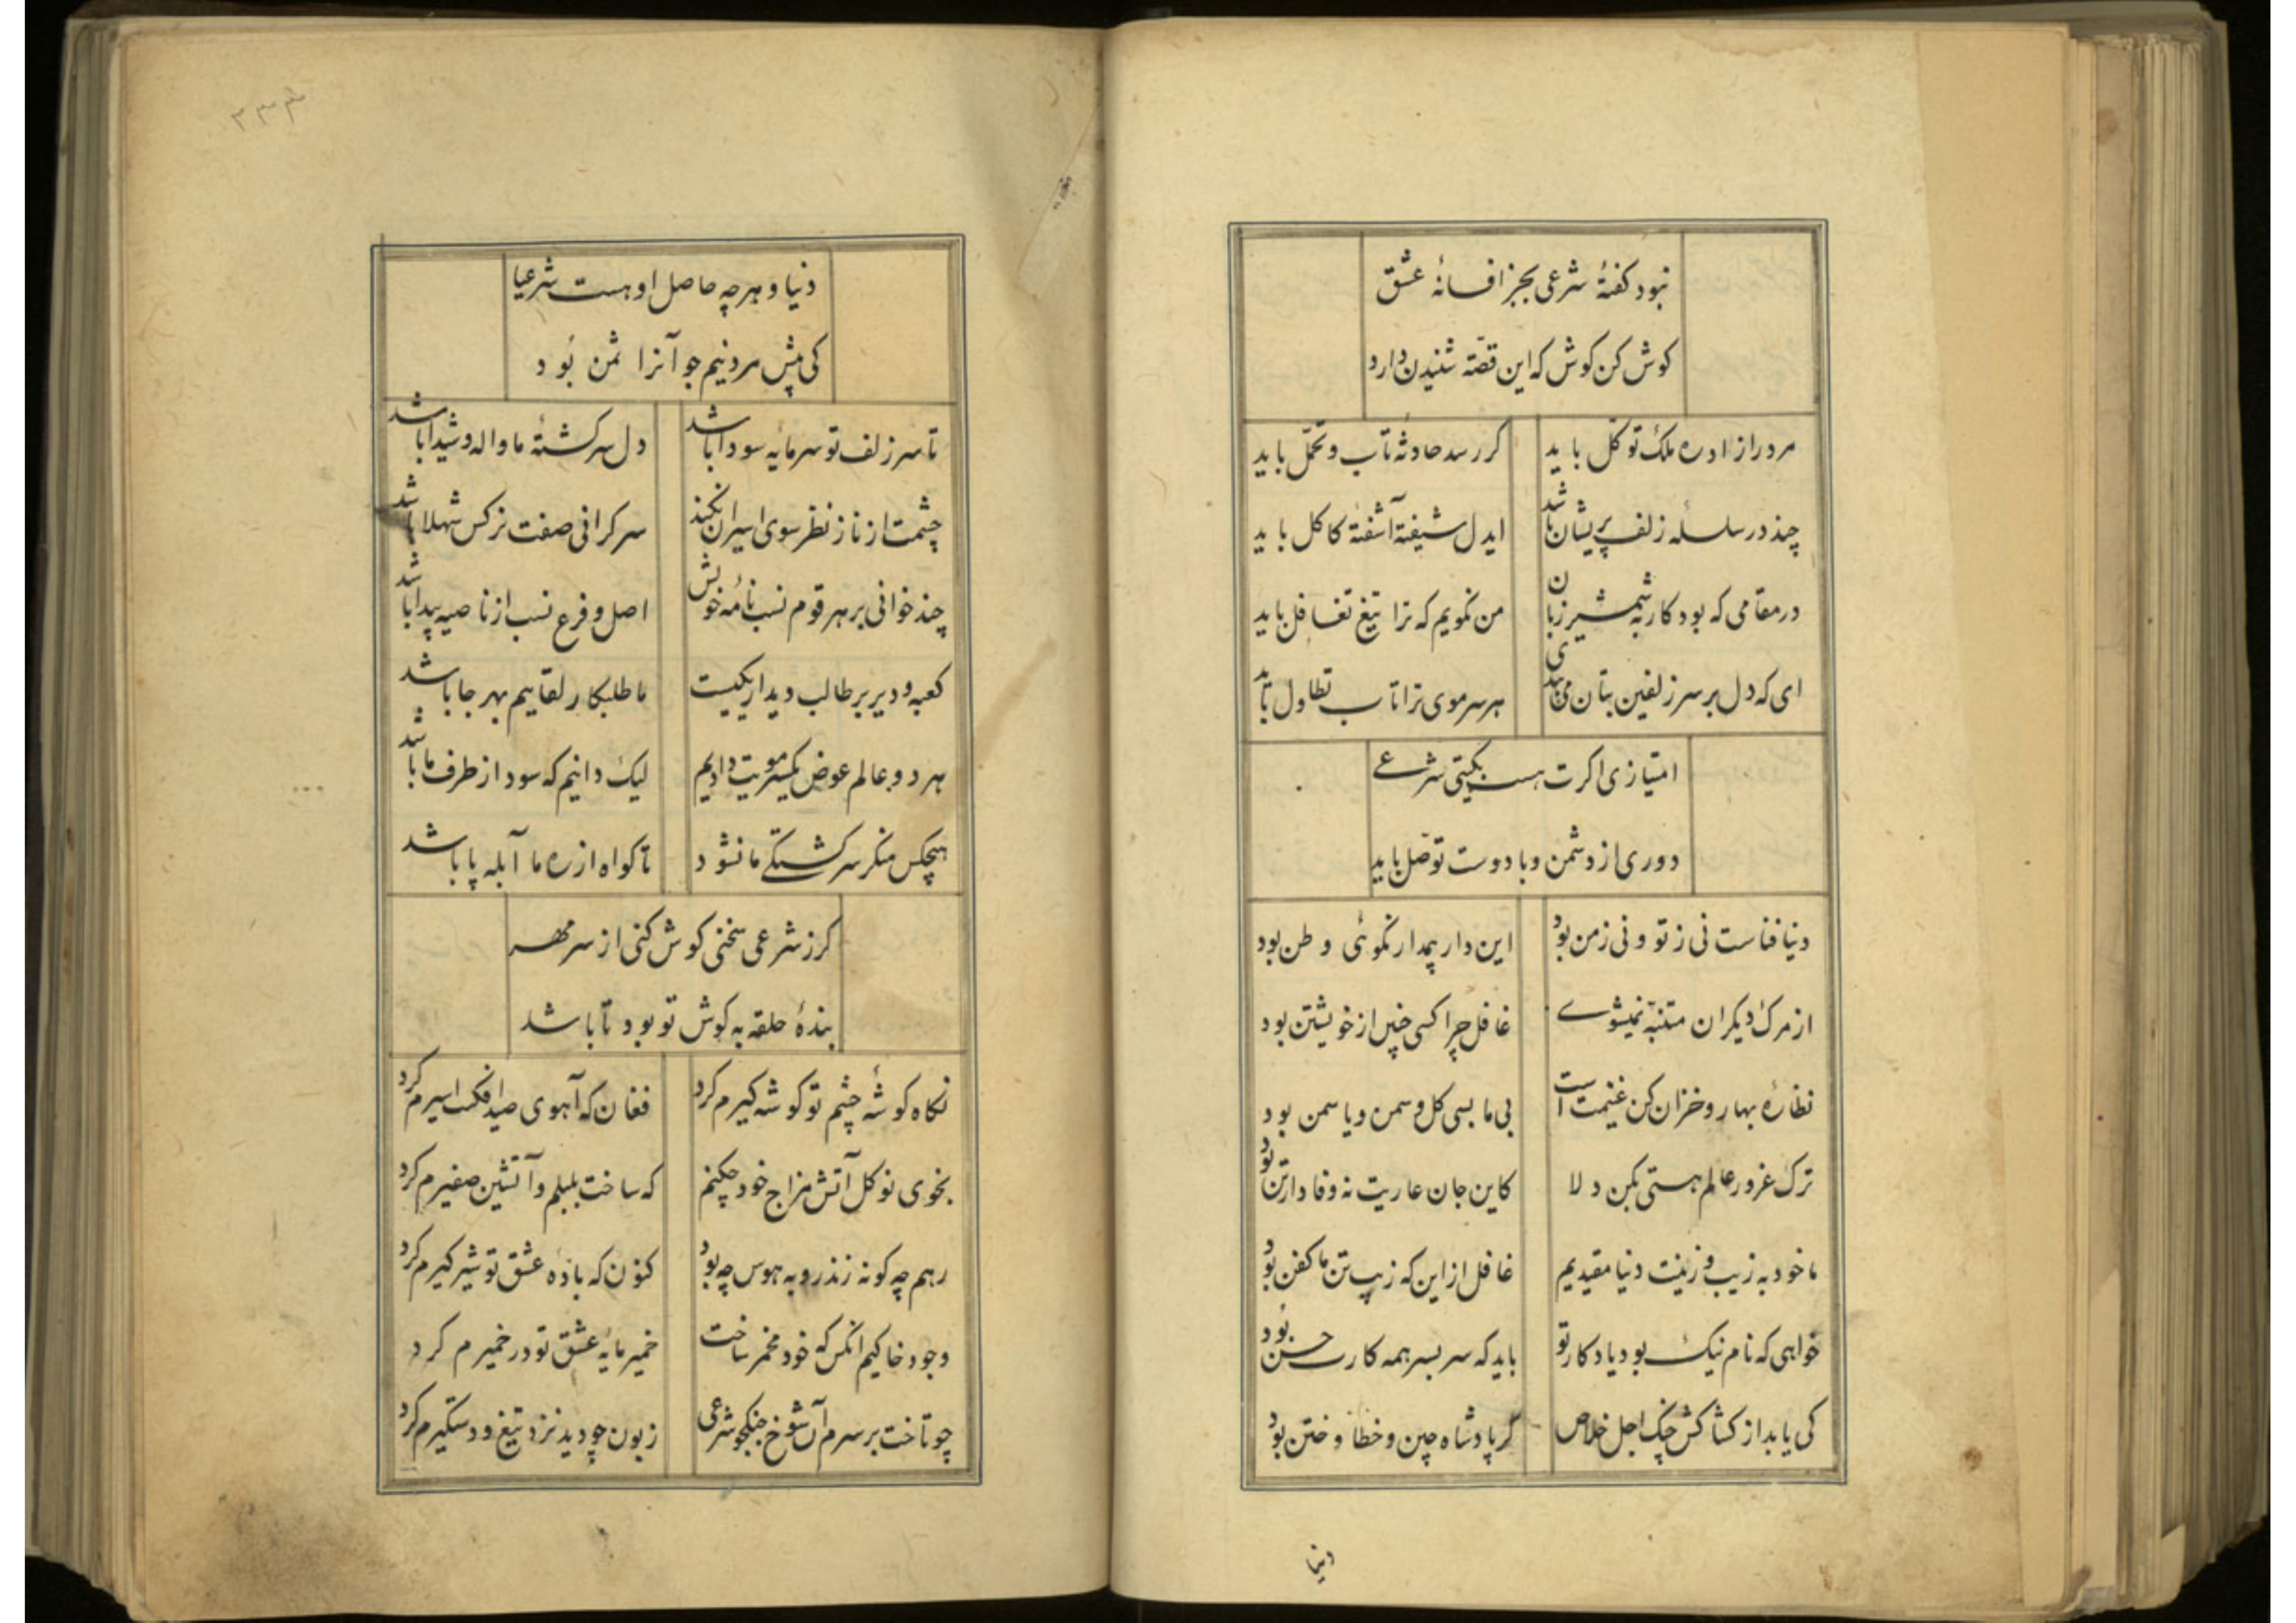 نبود کفتهٔ شرعی بجز افسانهٔ عشق
کوش کن کوش که این قصّه شنیدن دارد
مرد را زاد ره ملک توکّل باید
کر رسد حادثهٔ تاب و تحمّل باید
چند در سلسلهٔ زلف پریشان باشد
ایدل شیفته آشفتهٔ کاکل باید
در مقامی که بود کار به شمشیر زبان
من نکویم که ترا تیغ تغافل باید
ای که دل بر سر زلفین بتان می‌بندی
هر سر موی ترا تاب تطاول باید
امتیازی اکرت هست بکیتی شرعے
دوری از دشمن و با دوست توصّل باید
دنیا فناست نی ز تو و نی ز من بود
این دار بیمدار نکوئی وطن بود
از مرک دیکران متنبّه نمیشوے
غافل چرا کسی چنین از خویشتن بود
نظارهٔ بهار و خزان کن غنیمت است
بی ما بسی کل و سمن و یاسمن بود
ترک غرور عالم هستی بکن دلا
کاین جان عاریت نه وفادار تن بود
ما خود به زیب و زینت دنیا مقیدیم
غافل از این که زیب تن ما کفن بود
خواهی که نام نیک بود یادکار تو
باید که سر بسر همه کارت حسن بود
کی یابد از کشاکش چنک اجل خلاص
کر پادشاه چین و خطا و ختن بود
دنیا
۲۳۴
دنیا و هر چه حاصل او هست شرعیا
کی پیش مرد نیم جو آنرا ثمن بود
تا سر زلف تو سرمایه سودا باشد
دل سرکشتهٔ ما واله و شیدا باشد
چشمت از ناز نظر سوی اسیران نکند
سرکرانی صفت نرکس شهلا باشد
چند خوانی بر هر قوم نسب نامهٔ خویش
اصل و فرع نسب از ناصیه پیدا باشد
کعبه و دیر بر طالب دیدار یکیست
ما طلبکار لقاییم بهر جا باشد
هر دو عالم عوض یکسر مویت دادیم
لیک دانیم که سود از طرف ما باشد
هیچکس منکر سرکشتکے ما نشود
تا کواه از ره ما آبله پا باشد
کر ز شرعی سخنی کوش کنی از سر مهر
بندهٔ حلقه به کوش تو بود تا باشد
نکاه کوشهٔ چشم تو کوشه کیرم کرد
فغان که آهوی صید افکنت اسیرم کرد
بخوی نو کل آتش مزاج خود چکنم
که ساخت بلبلم و آتشین صفیرم کرد
رهم چه کونه زند روبه هوس چه بود
کنون که بادهٔ عشق تو شیر کیرم کرد
وجود خاکیم انکس که خود مخمر ساخت
خمیر مایهٔ عشق تو در خمیرم کرد
چو تاخت بر سرم آن شوخ جنکجو شرعی
زبون چو دید نزد تیغ و دستکیرم کرد